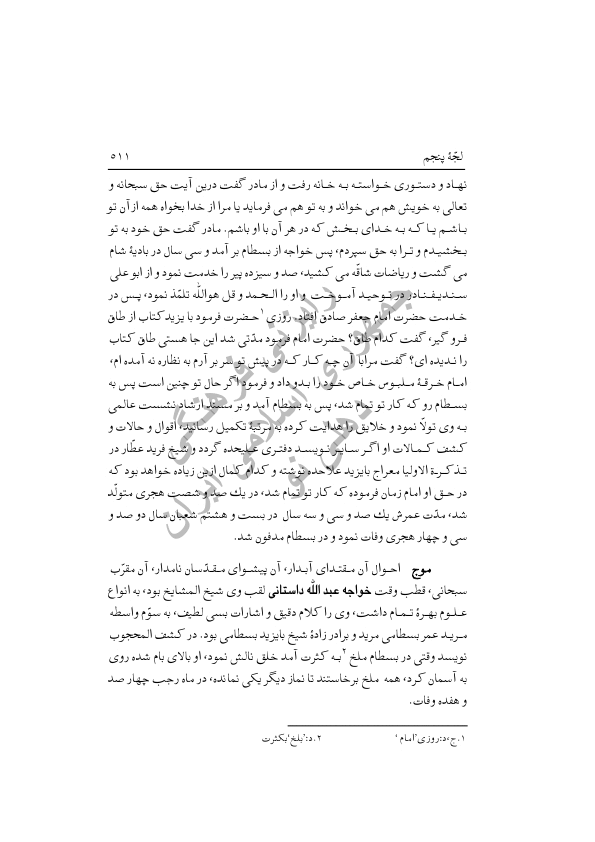 لجّهٔ پنجم ۵۱۱
نهاد و دستوری خواسته به خانه رفت و از مادر گفت درین آیت حق سبحانه و
تعالی به خویش هم می خواند و به تو هم می فرماید یا مرا از خدا بخواه همه از آن تو
باشم یا که به خدای بخش که در هر آن با او باشم. مادر گفت حق خود به تو
بخشیدم و ترا به حق سپردم، پس خواجه از بسطام بر آمد و سی سال در بادیهٔ شام
می گشت و ریاضات شاقّه می کشید، صد و سیزده پیر را خدمت نمود و از ابو علی
سندیفنادر در توحید آموخت و او را الحمد و قل هوالله تلمّذ نمود، پس در
خدمت حضرت امام جعفر صادق افتاد. روزی ۱ حضرت فرمود با یزید کتاب از طاق
فرو گیر، گفت کدام طاق؟ حضرت امام فرمود مدّتی شد این جا هستی طاق کتاب
را ندیده ای؟ گفت مرا با آن چه کار که در پیش تو سر بر آرم به نظاره نه آمده ام،
امام خرقهٔ ملبوس خاص خود را بدو داد و فرمود اگر حال تو چنین است پس به
بسطام رو که کار تو تمام شد، پس به بسطام آمد و بر مسند ارشاد نشست عالمی
به وی تولّا نمود و خلایق را هدایت کرده به مرتبهٔ تکمیل رسانید، اقوال و حالات و
کشف کمالات او اگر سایر نویسد دفتری علیحده گردد و شیخ فرید عطّار در
تذکرة الاولیا معراج بایزید علاحده نوشته و کدام کمال ازین زیاده خواهد بود که
در حق او امام زمان فرموده که کار تو تمام شد، در یك صد و شصت هجری متولّد
شد، مدّت عمرش یك صد و سی و سه سال در بست و هشتم شعبان سال دو صد و
سی و چهار هجری وفات نمود و در بسطام مدفون شد.
موج احوال آن مقتدای آبدار، آن پیشوای مقدّسان نامدار، آن مقرّب
سبحانی، قطب وقت خواجه عبد الله داستانی لقب وی شیخ المشایخ بود، به انواع
علوم بهرهٔ تمام داشت، وی را کلام دقیق و اشارات بسی لطیف، به سوّم واسطه
مرید عمر بسطامی مرید و برادر زادهٔ شیخ بایزید بسطامی بود. در کشف المحجوب
نویسد وقتی در بسطام ملخ ۲ به کثرت آمد خلق نالش نمود، او بالای بام شده روی
به آسمان کرد، همه ملخ برخاستند تا نماز دیگر یکی نمانده، در ماه رجب چهار صد
و هفده وفات.
۱. ج،د: روزی ’امام‘ ۲. د: ’بلخ‘ بکثرت
رایزنی فرهنگی
جمهوری اسلامی ایران
دهلی نو